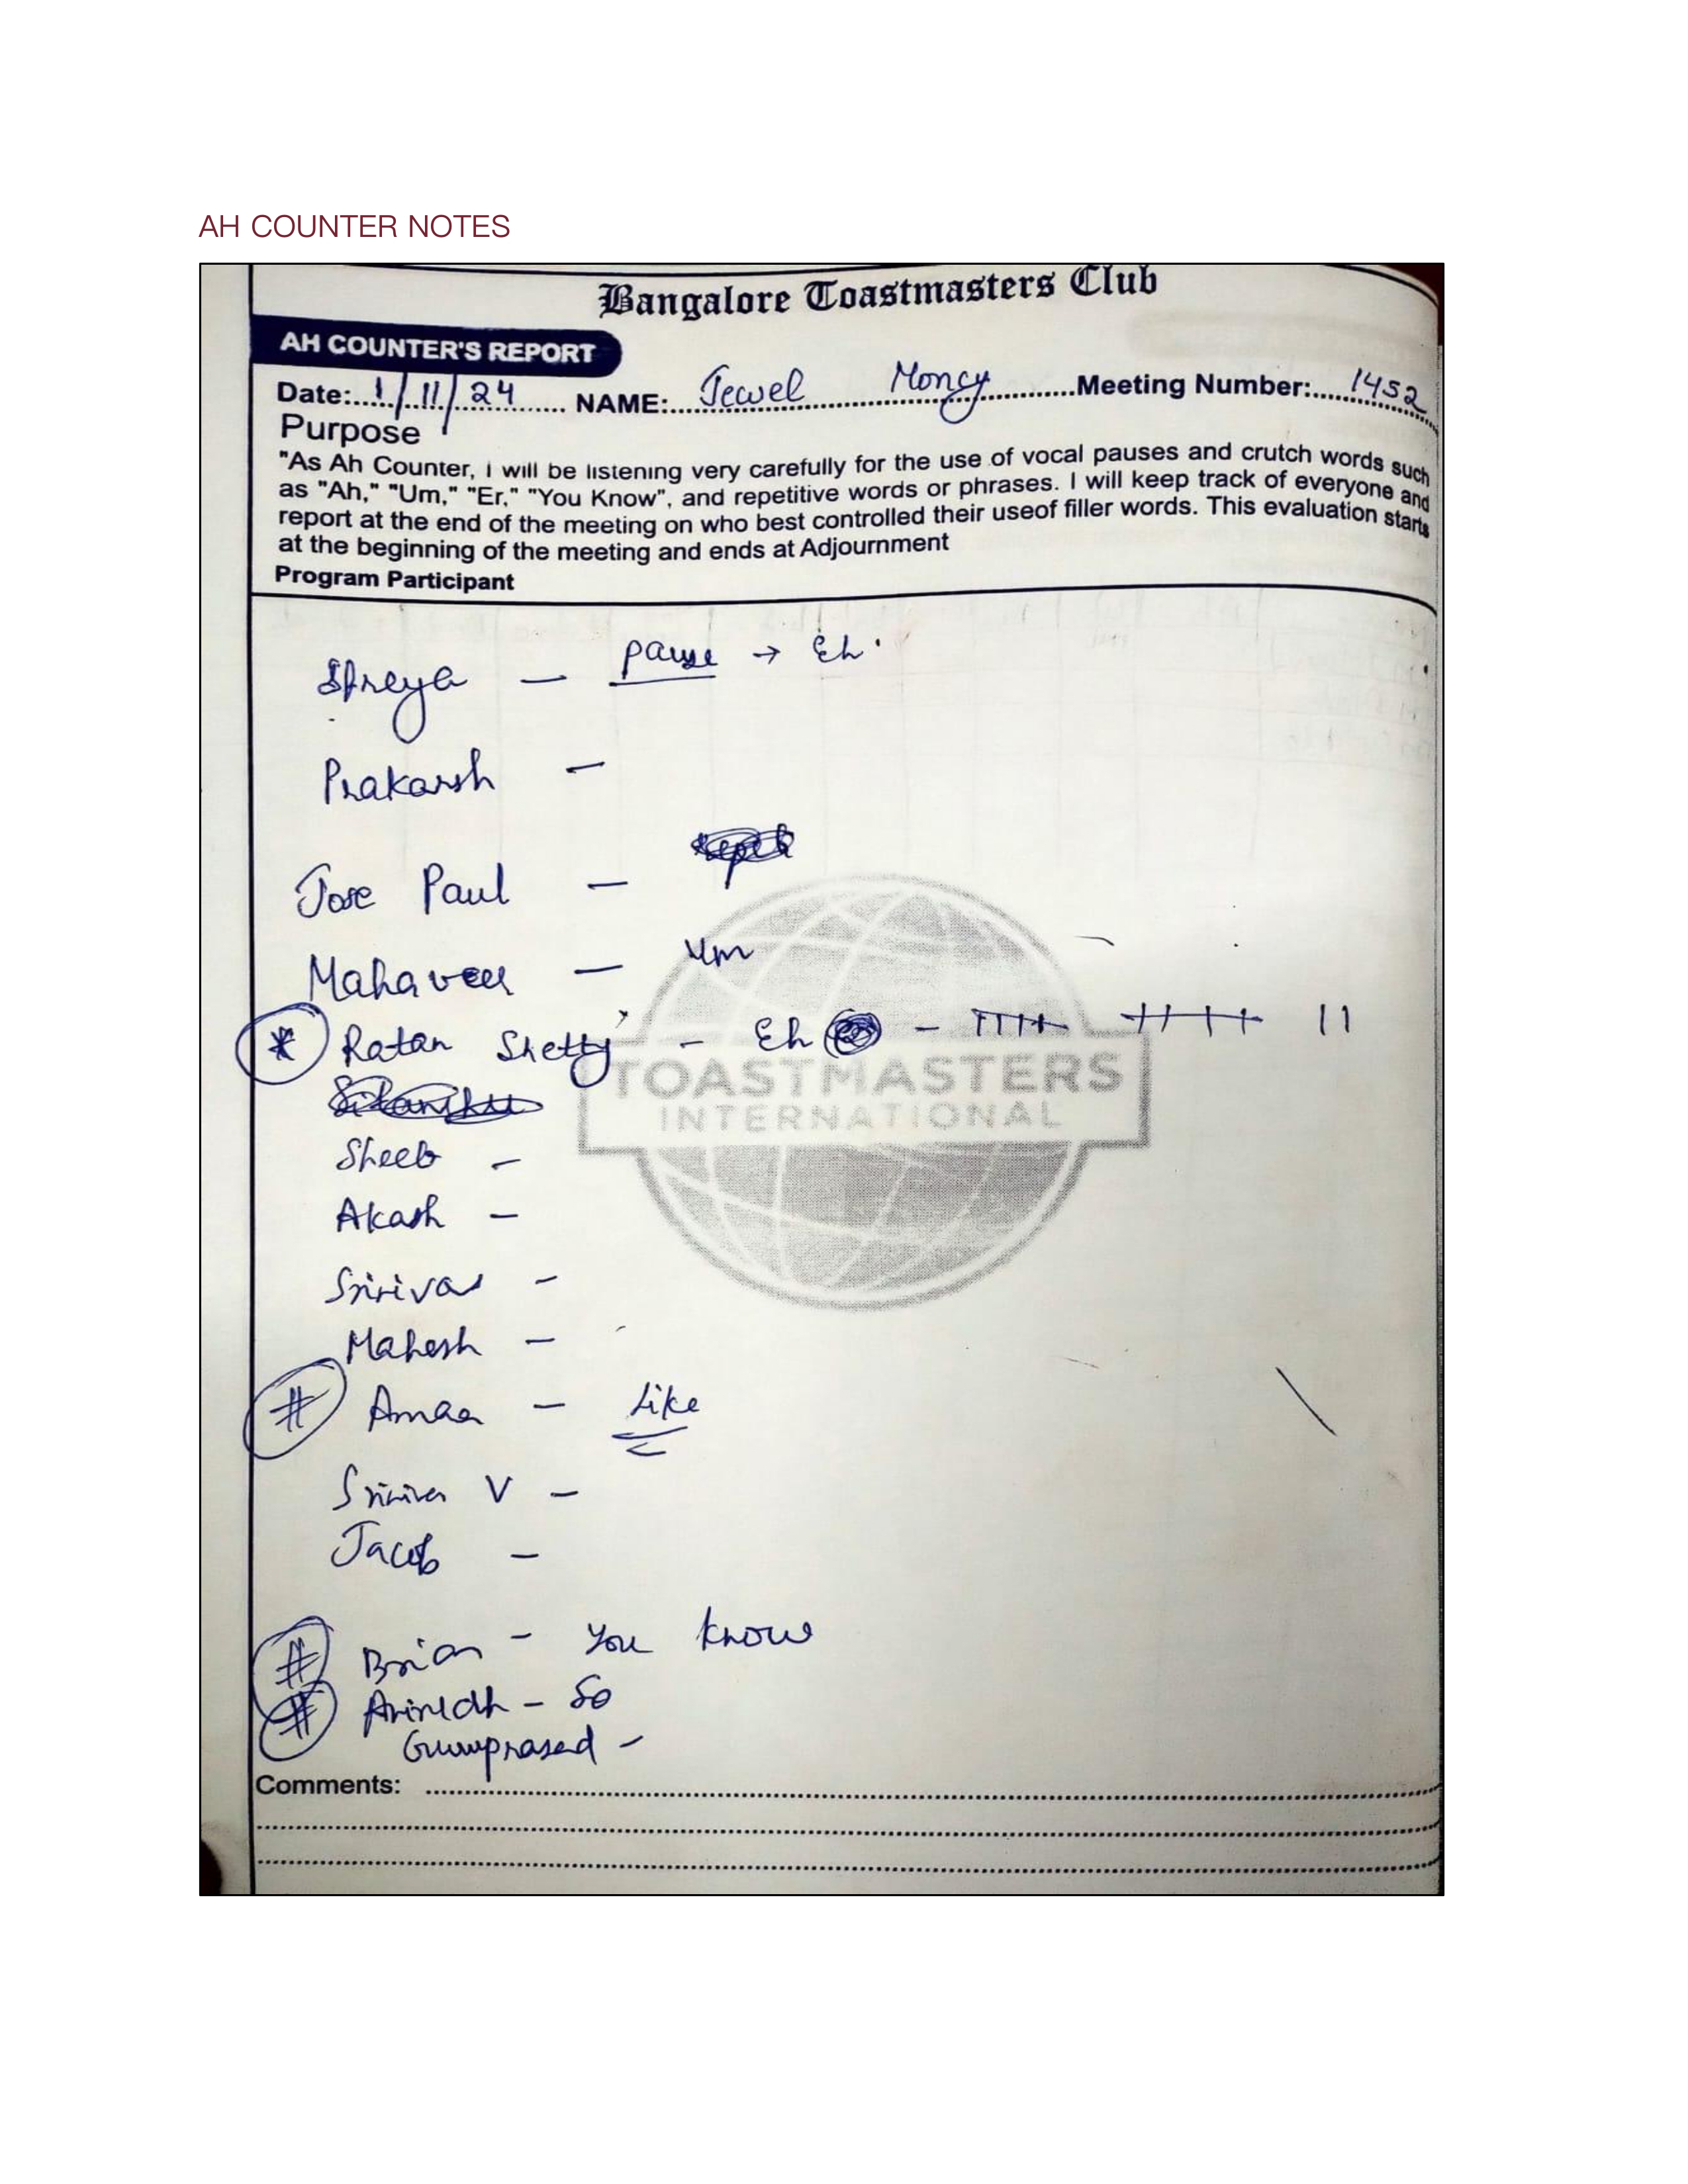 AH COUNTER NOTES
Bangalore Toastmasters Club
AH COUNTER'S REPORT
Date:....1/11/24............ NAME:....Jewel Moncy............Meeting Number:.....1452
Purpose
"As Ah Counter, I will be listening very carefully for the use of vocal pauses and crutch words such
as "Ah," "Um," "Er," "You Know", and repetitive words or phrases. I will keep track of everyone and
report at the end of the meeting on who best controlled their useof filler words. This evaluation starts
at the beginning of the meeting and ends at Adjournment
Program Participant
Shreya — pause → Eh.
Prakarsh —
Jose Paul —
Mahaveer — Um
* Ratan Shetty - Eh - |||| |||| ||
TOASTMASTERS
INTERNATIONAL
Sheeb -
Akash -
Srinivas -
Mahesh -
# Amaa - Like
V -
Jacob -
# Brian - You know
# Anirudh - So
Guruprasad -
Comments: